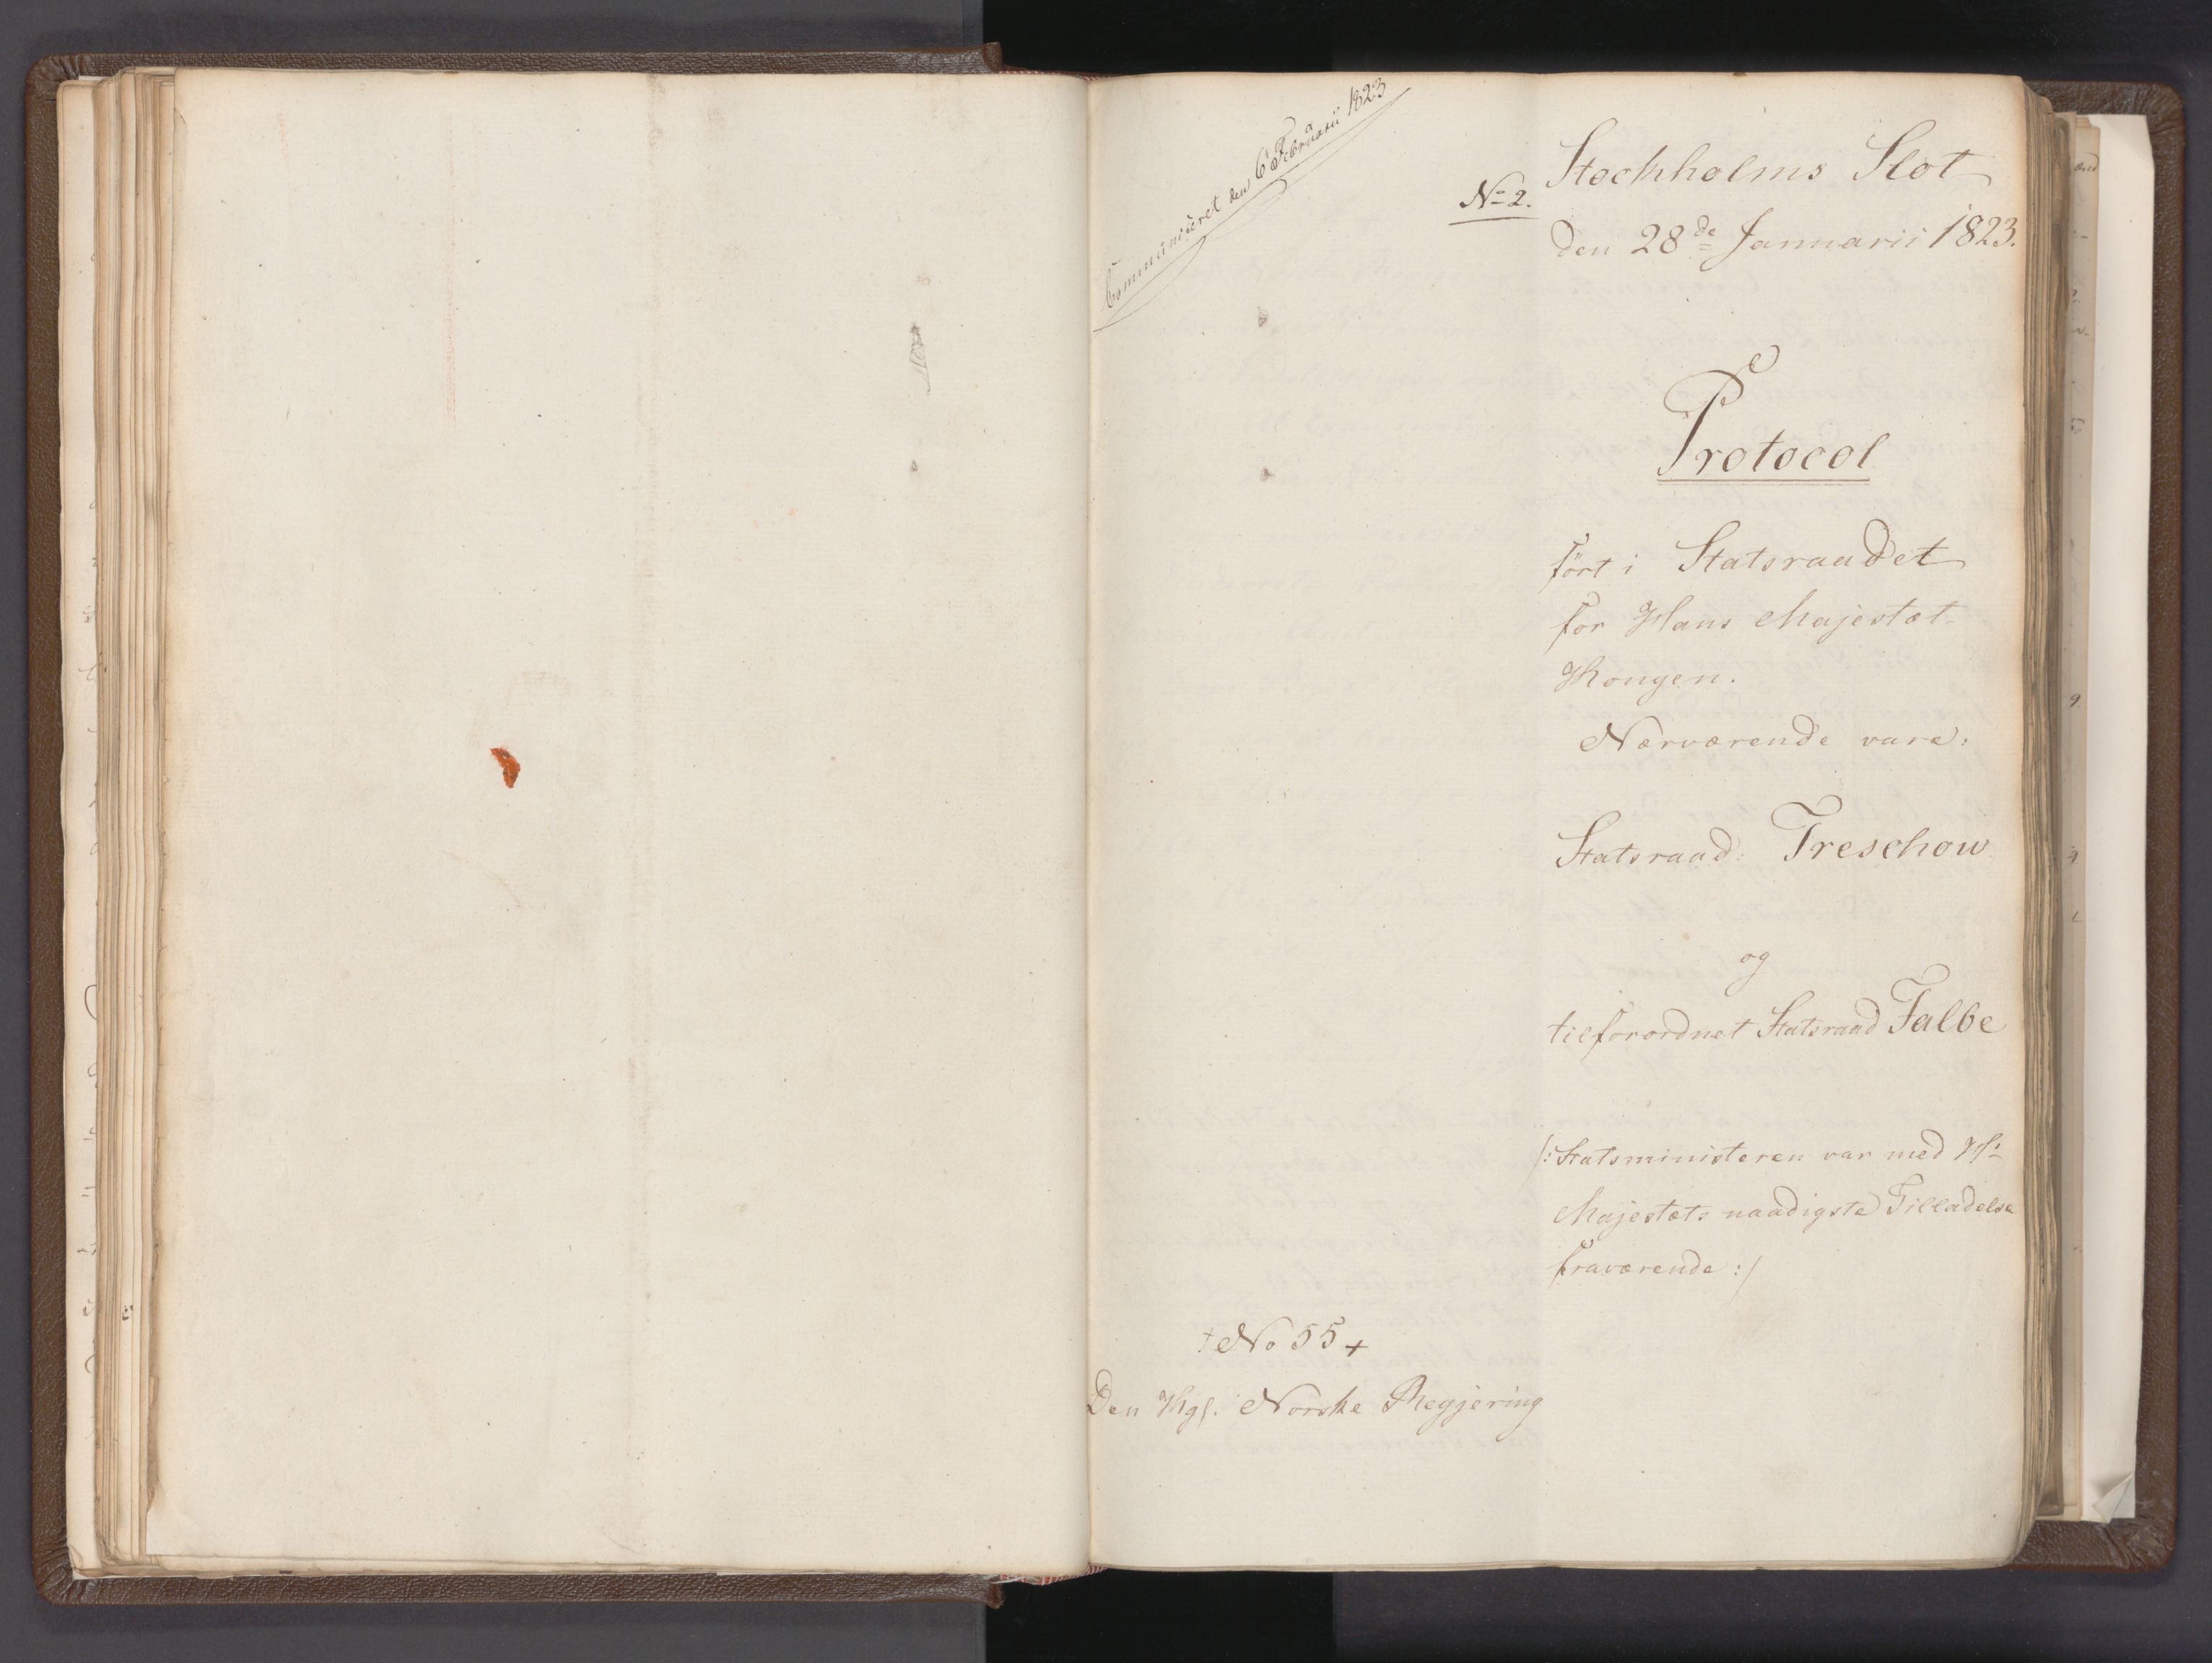 Communiceret den 6 Februarii 1823
No 2.
Stockholms Slot
den 28de Januarii 1823.
Protocol
ført i Statsraadet
for Hans Majestæt
Kongen.
Nærværende vare:
Statsraad: Treschow
og
tilforordnet Statsraad Falbe
/: Statsministeren var med Hs
Majestæts naadigste Tilladelse
fraværende :/
No 55
Den Kgl. Norske Regjering